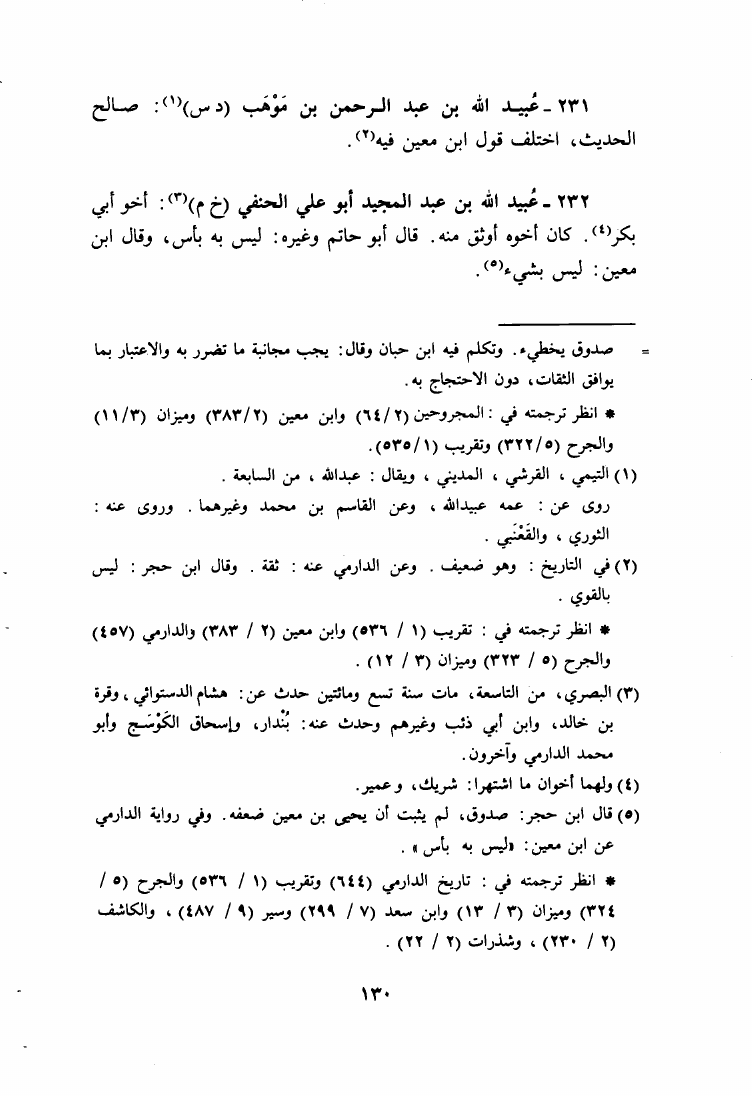 ٢٣١ - عُبيـد الله بن عبد الـرحمن بن مَوْهَب (د س)(١): صـالح
الحديث، اختلف قول ابن معين فيه(٢).
٢٣٢ - عُبيد الله بن عبد المجيد أبو علي الحنفي (خ م)(٣): أخو أبي
بكر(٤). كان أخوه أوثق منه. قال أبو حاتم وغيره: ليس به بأس، وقال ابن
معين: ليس بشيء(٥).
= صدوق يخطيء. وتكلم فيه ابن حبان وقال: يجب مجانبة ما تضرر به والاعتبار بما
يوافق الثقات، دون الاحتجاج به.
* انظر ترجمته في : المجروحين (٢/ ٦٤) وابن معين (٣٨٣/٢) وميزان (١١/٣)
والجرح (٣٢٢/٥) وتقريب (٥٣٥/١).
(١) التيمي ، القرشي ، المديني ، ويقال : عبدالله ، من السابعة .
روى عن : عمه عبيدالله ، وعن القاسم بن محمد وغيرهما . وروى عنه :
الثوري ، والقَعْنَبي .
(٢) في التاريخ : وهو ضعيف . وعن الدارمي عنه : ثقة . وقال ابن حجر : ليس
بالقوي .
* انظر ترجمته في : تقريب (١ / ٥٣٦) وابن معين (٢ / ٣٨٣) والدارمي (٤٥٧)
والجرح (٥ / ٣٢٣) وميزان (٣ / ١٢) .
(٣) البصري، من التاسعة، مات سنة تسع ومائتين حدث عن: هشام الدستوائي ، وقرة
بن خالد، وابن أبي ذئب وغيرهم وحدث عنه: بُنْدار، وإسحاق الكَوْسَـج وأبو
محمد الدارمي وآخرون.
(٤) ولهما أخوان ما اشتهرا: شريك، وعمير.
(٥) قال ابن حجر: صدوق، لم يثبت أن يحيى بن معين ضعفه. وفي رواية الدارمي
عن ابن معين: «ليس به بأس» .
* انظر ترجمته في : تاريخ الدارمي (٦٤٤) وتقريب (١ / ٥٣٦) والجرح (٥ /
٣٢٤) وميزان (٣ / ١٣) وابن سعد (٧ / ٢٩٩) وسير (٩ / ٤٨٧) ، والكاشف
(٢ / ٢٣٠) ، وشذرات (٢ / ٢٢) .
١٣٠